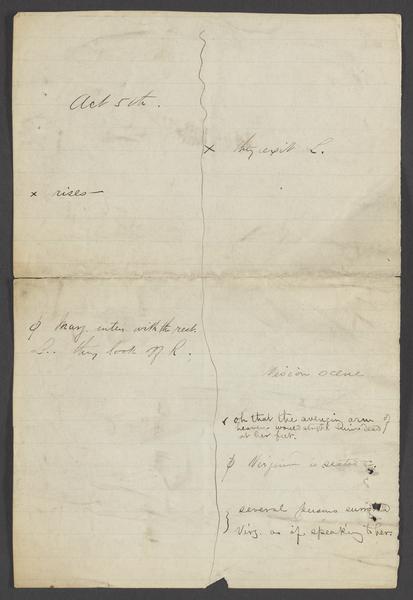 Act 5th.
x rises —
φ Mary enters with the rest
L.. they look off R.
x they exit L.
Vision scene
x oh that the avengin arm of
heaven would strike him dead
at her feet.
φ Virginia is seated
} several persons surround
Virg. as if speaking to her.